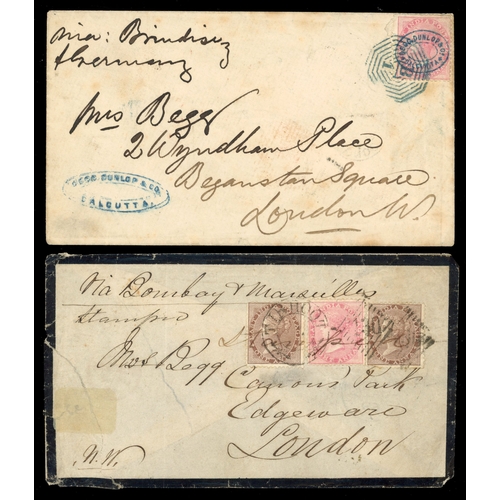 via: Brindisi &
Germany
Mrs Begg
2 Wyndham Place
Beganstan Square
London W.
BEGG DUNLOP & CO
CALCUTTA
Via Bombay & Marseilles
Stamped
Mrs Begg
Canons Park
Edgeware
London
N.W.